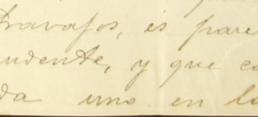 travajos, es pare
udente, y que ca
da uno en lo